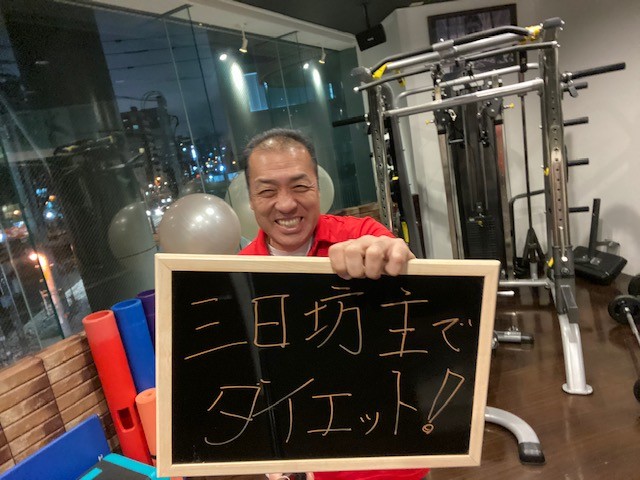 三日坊主で
ダイエット!